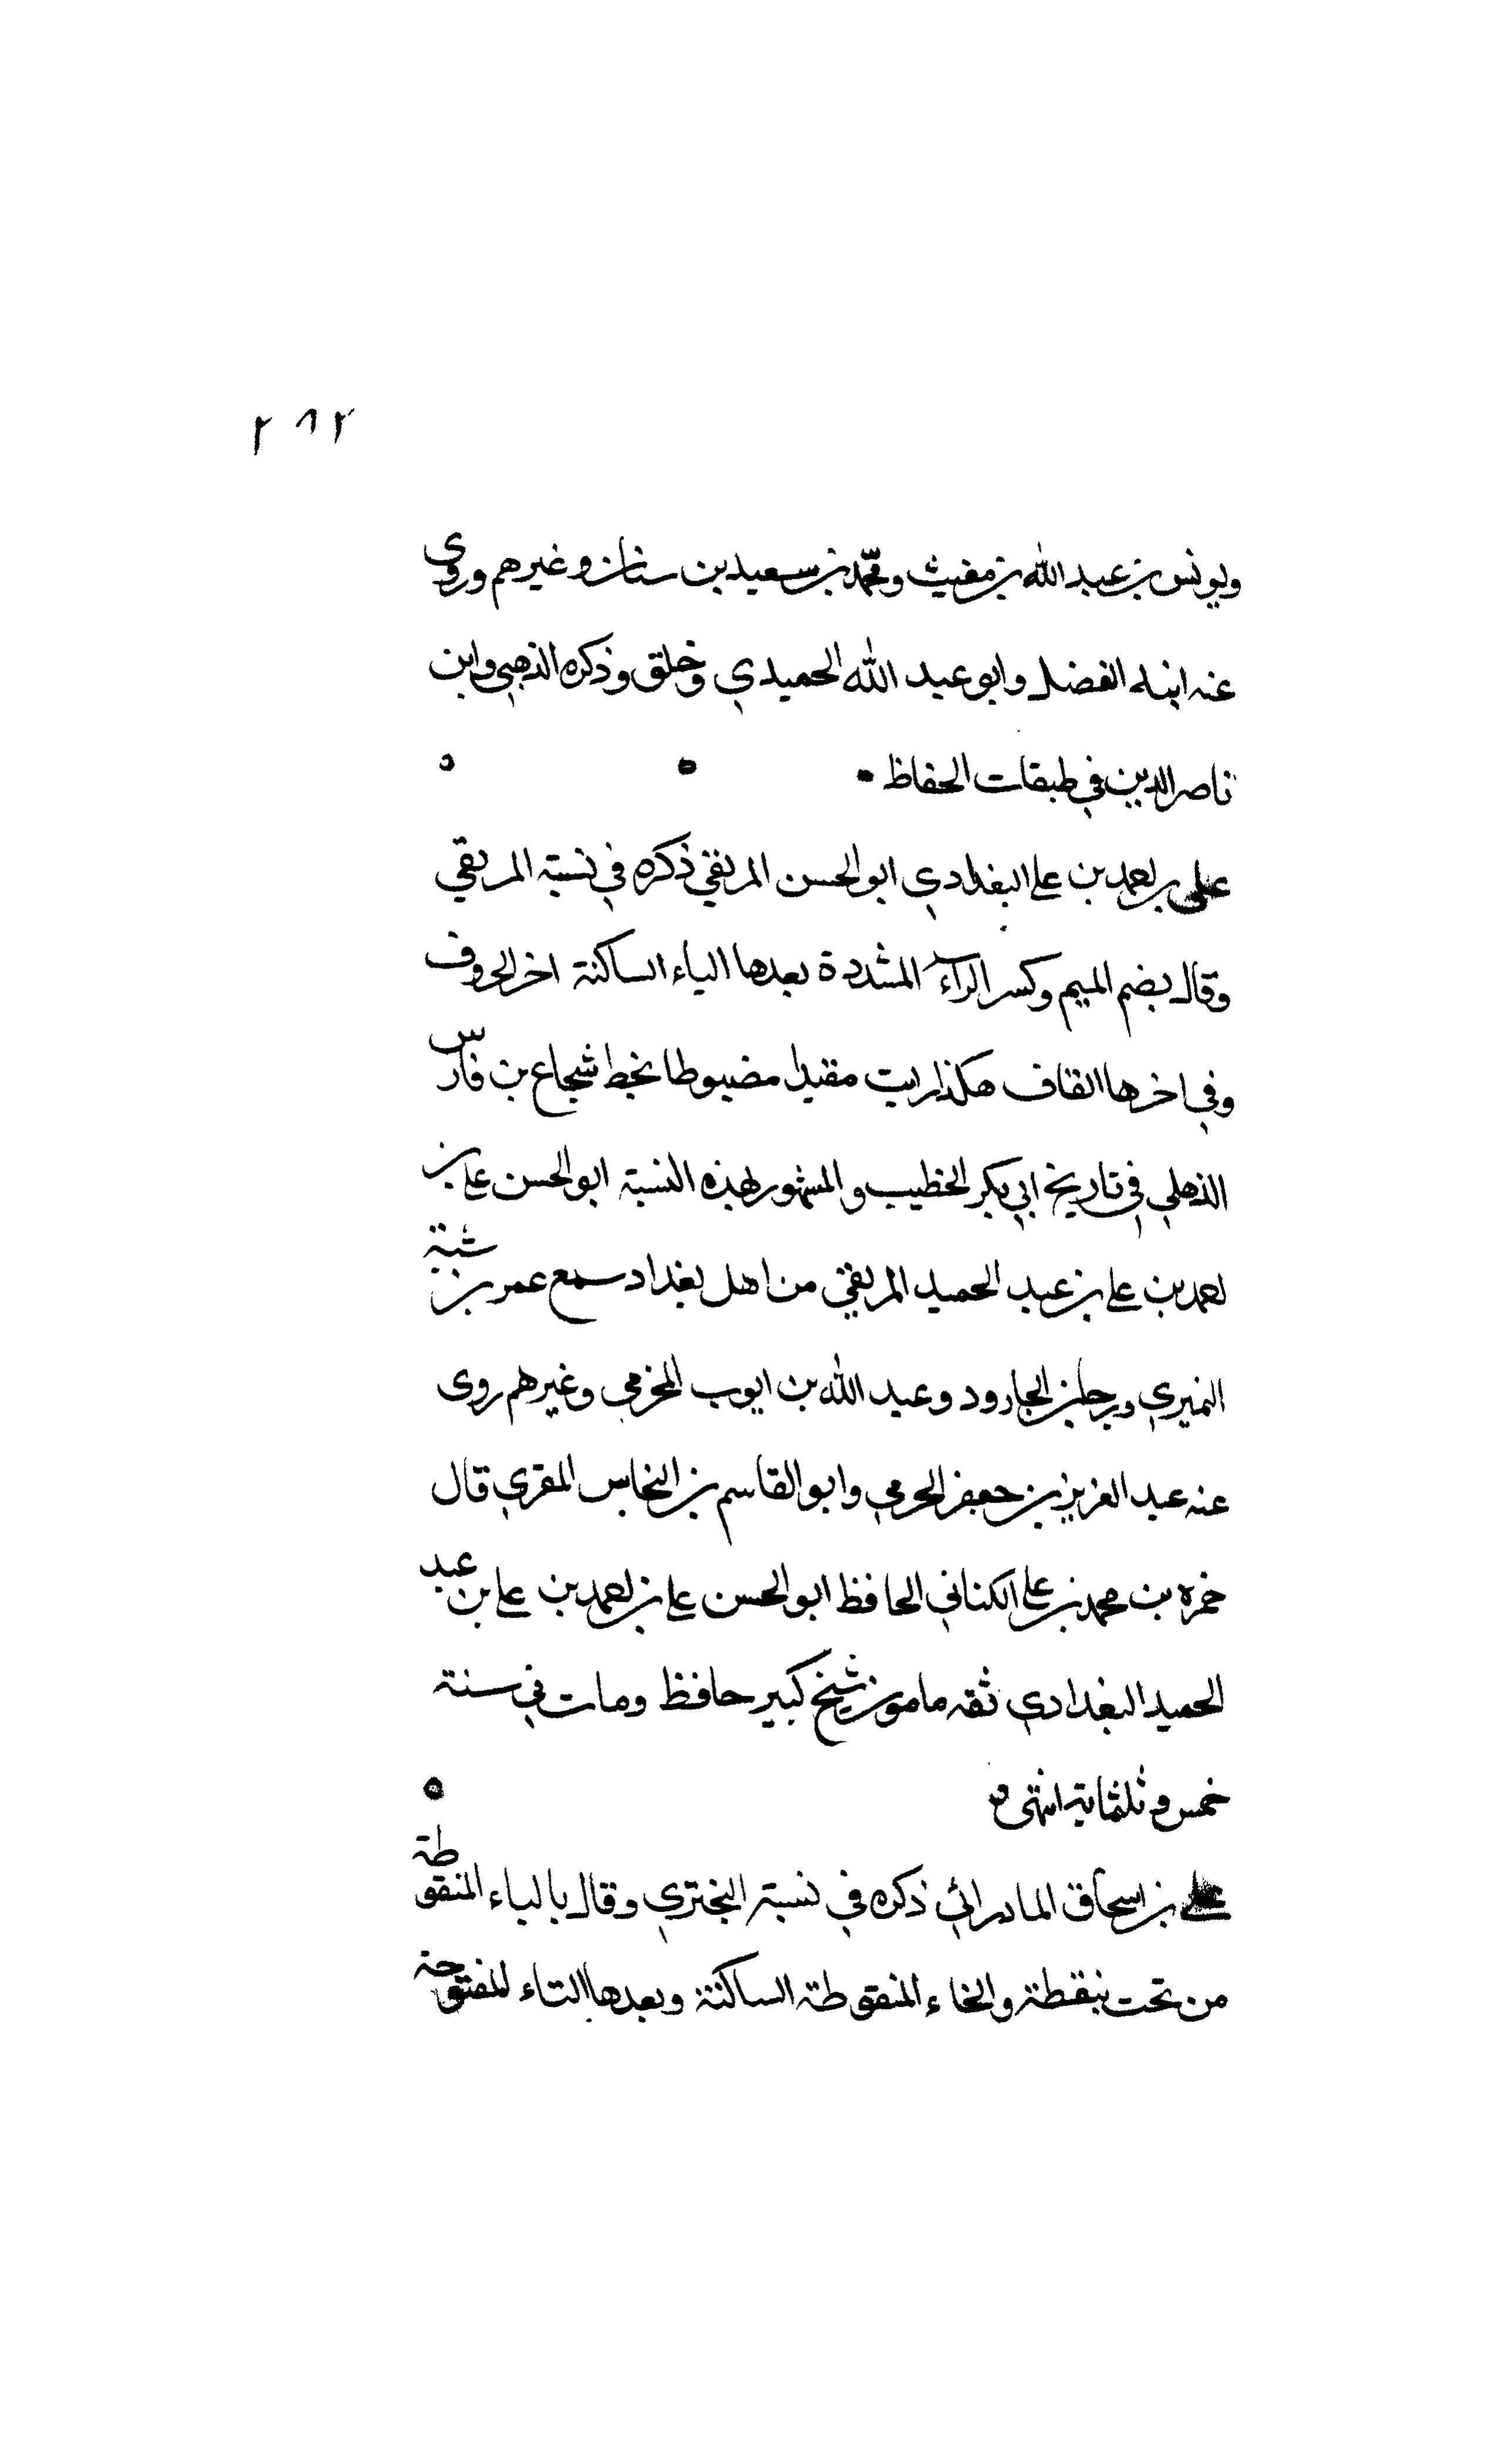 ٢٨٢
ويونس بن عبد الله بن مغيث ومحمد بن سعيد بن سنان وغيرهم وروى
عنه ابنه الفضل وابو عبد الله الحميدي وخلق وذكره الذهبي وابن
ناصر الدين في طبقات الحفاظ
على بن احمد بن على البغدادي ابو الحسن المريقي ذكره في نسبة المريقي
وقال بضم الميم وكسر الراء المشددة بعدها الياء الساكنة اخر الحروف
وفي اخرها القاف هكذا رايت مقيدا مضبوطا بخط شجاع بن فارس
الذهلي في تاريخ ابي بكر الخطيب والمشهور بهذه النسبة ابو الحسن على بن
احمد بن على بن عبد الحميد المريقي من اهل بغداد سمع عمر بن شبة
النميري ورجا بن الجارود وعبد الله بن ايوب المخرمي وغيرهم روى
عنه عبد العزيز بن جعفر الحرمي وابو القاسم بن النخاس المقري قال
حمزه بن محمد بن على الكناني الحافظ ابو الحسن على بن احمد بن على بن عبد
الحميد البغدادي ثقه مامون شيخ كبير حافظ ومات في سنة
خمس وثلثماية انتهى
على بن اسحاق المادرائي ذكره في نسبة البختري وقال بالباء المنقوطة
من تحت بنقطة والخاء المنقوطة الساكنة وبعدها التاء المفتوحة